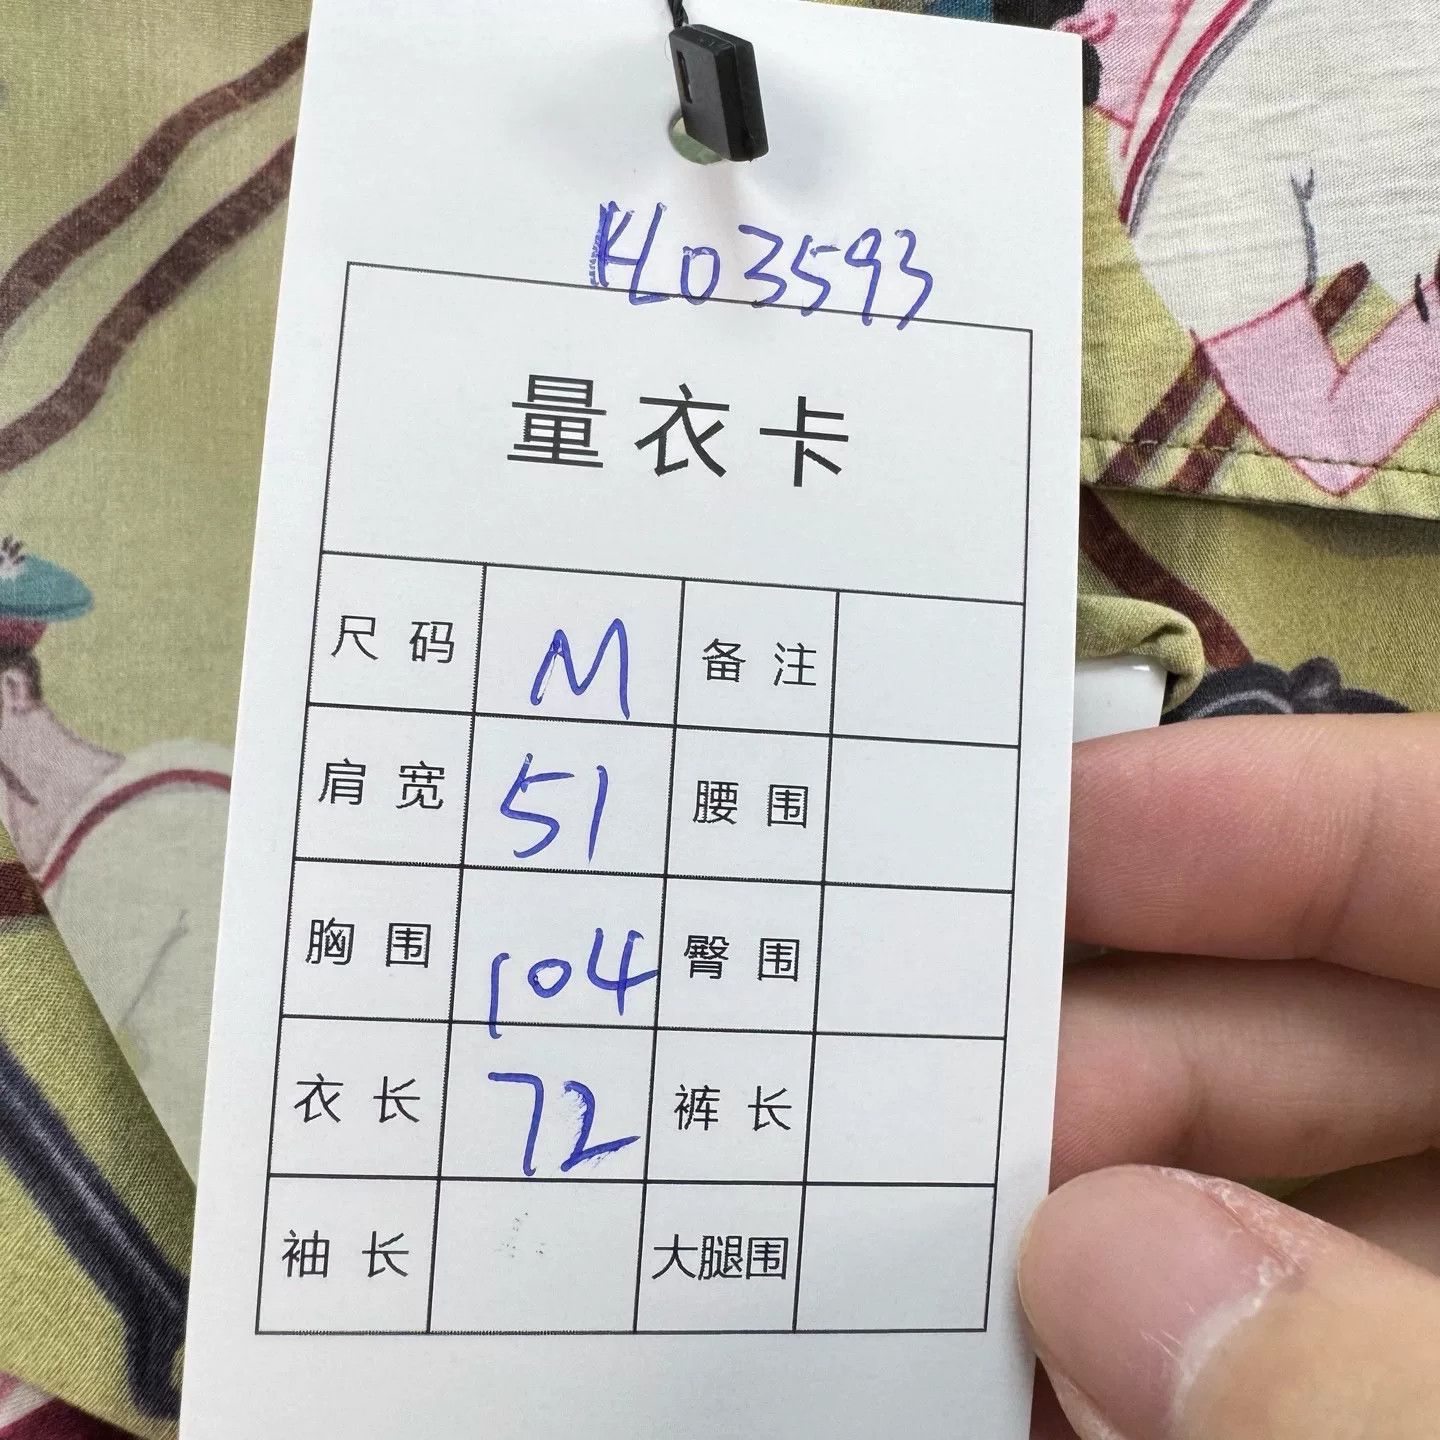 HL03593
量衣卡
尺码 M 备注
肩宽 51 腰围
胸围 104 臀围
衣长 72 裤长
袖长 大腿围